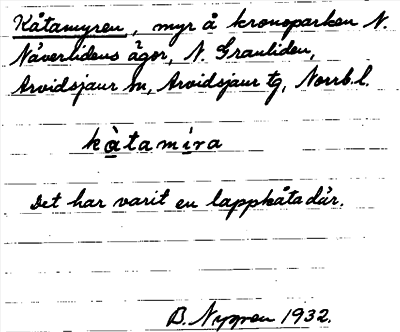 Kåtamyren, myr å kronoparken N.
Nåverlidens ägor, N. Granliden,
Arvidsjaur sn, Arvidsjaur tg, Norrb. l.
kàtamíra
Det har varit en lappkåta där.
B. Nygren 1932.